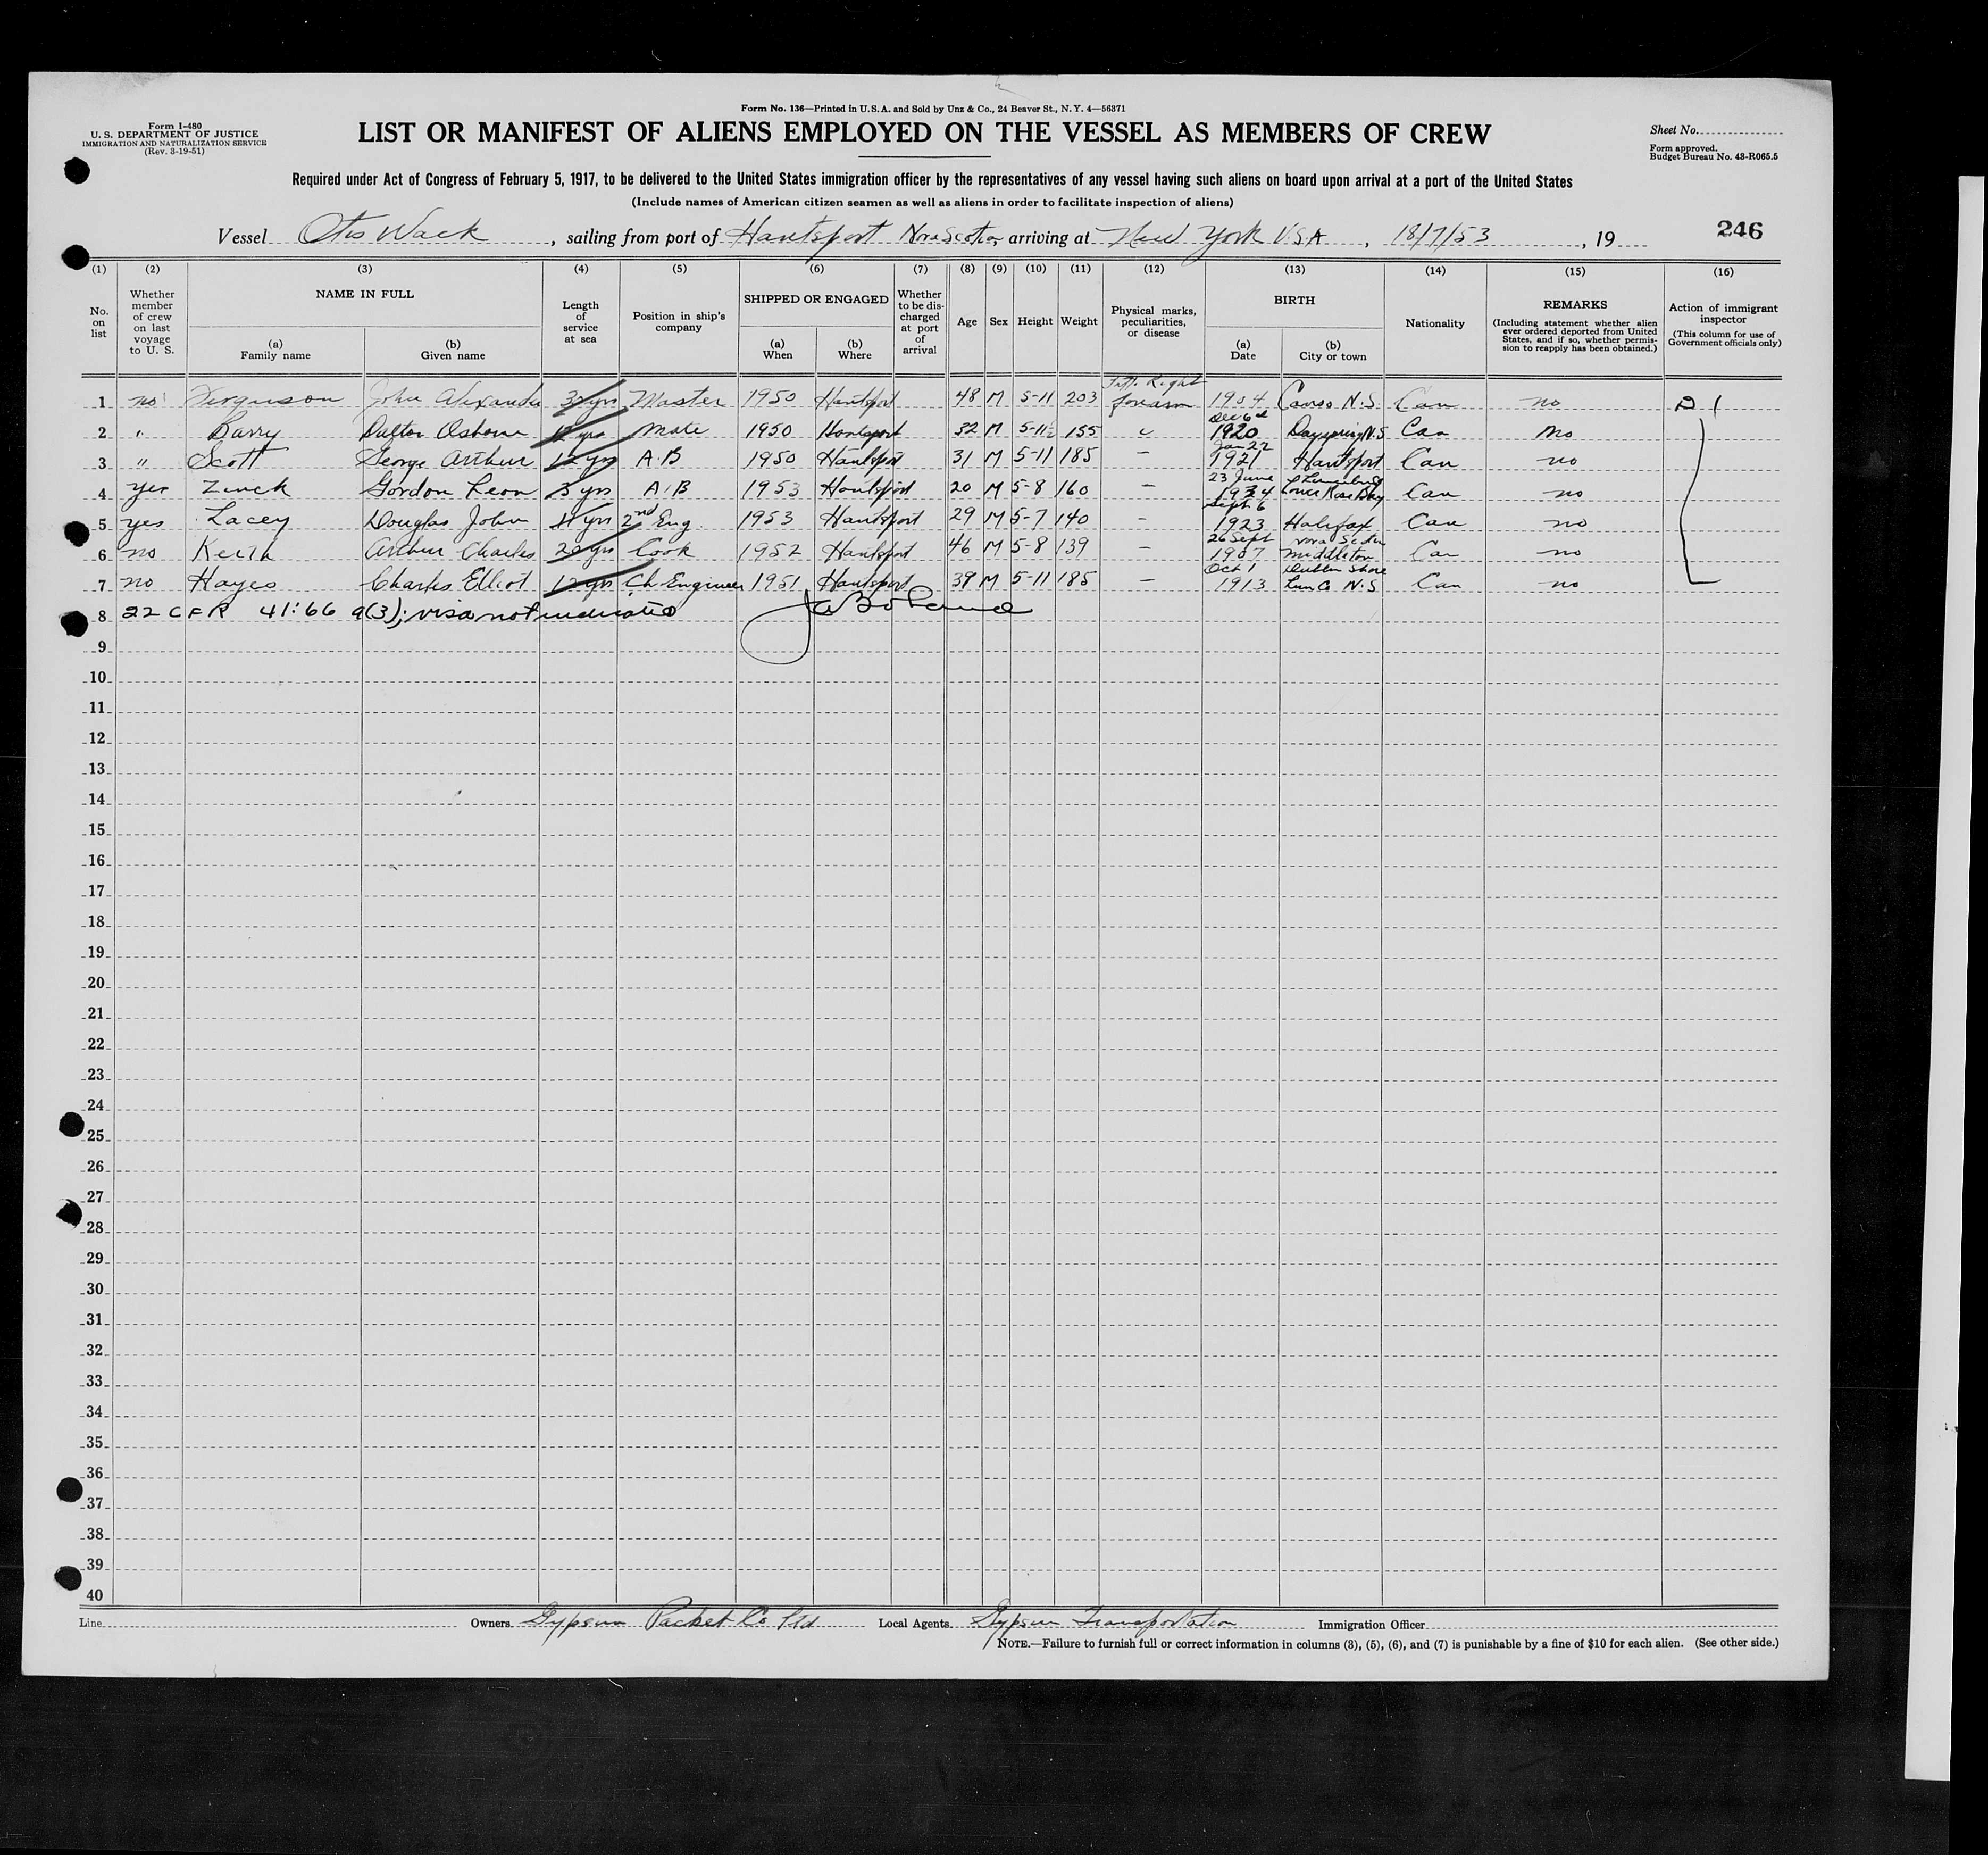 Form No. 136—Printed in U.S.A. and Sold by Unz & Co., 24 Beaver St., N.Y. 4—56371
Form I-480
U. S. DEPARTMENT OF JUSTICE
IMMIGRATION AND NATURALIZATION SERVICE
(Rev. 3-19-51)
LIST OR MANIFEST OF ALIENS EMPLOYED ON THE VESSEL AS MEMBERS OF CREW
Sheet No.
Form approved.
Budget Bureau No. 43-R065.5
Required under Act of Congress of February 5, 1917, to be delivered to the United States immigration officer by the representatives of any vessel having such aliens on board upon arrival at a port of the United States
(Include names of American citizen seamen as well as aliens in order to facilitate inspection of aliens)
Vessel Otis Wack, sailing from port of Hantsport Nova Scotia, arriving at New York USA, 18/7/53, 19
246
(1) (2) (3) (4) (5) (6) (7) (8) (9) (10) (11) (12) (13) (14) (15) (16)
No. on list
Whether member of crew on last voyage to U. S.
NAME IN FULL
(a) Family name
(b) Given name
Length of service at sea
Position in ship's company
SHIPPED OR ENGAGED
(a) When
(b) Where
Whether to be discharged at port of arrival
Age
Sex
Height
Weight
Physical marks, peculiarities, or disease
BIRTH
(a) Date
(b) City or town
Nationality
REMARKS
(Including statement whether alien ever ordered deported from United States, and if so, whether permission to reapply has been obtained.)
Action of immigrant inspector
(This column for use of Government officials only)
1 no Ferguson John Alexander yrs Master 1950 Hantsport 48 M 5-11 203 Right forearm 1904 Canso N.S. Can no D 1
2 " Barry Dalton Osborne 12 yrs Mate 1950 Hantsport 32 M 5-11½ 155 Dec 6th 1920 Dayspring N.S Can no
3 " Scott George Arthur 12 yrs A.B 1950 Hantsport 31 M 5-11 185 — Jan 22 1921 Hantsport Can no
4 yes Zinck Gordon Leon 3 yrs A.B 1953 Hantsport 20 M 5-8 160 — 23 June 1934 Lower Rose Bay Can no
5 yes Lacey Douglas John yrs 2nd Eng. 1953 Hantsport 29 M 5-7 140 — Sept 6 1923 Halifax Can no
6 no Keith Arthur Charles 20 yrs Cook 1952 Hantsport 46 M 5-8 139 — 26 Sept 1907 Nova Scotia Middleton Can no
7 no Hayes Charles Elliot 12 yrs Ch. Engineer 1951 Hantsport 39 M 5-11 185 — Oct 1 1913 Dublin Shore Lun Co N.S Can no
8 22 CFR 41:66 a(3); visa not indicated
9
10
11
12
13
14
15
16
17
18
19
20
21
22
23
24
25
26
27
28
29
30
31
32
33
34
35
36
37
38
39
40
Line
Owners Gypsum Packet Co Ltd
Local Agents Gypsum Transportation
Immigration Officer
NOTE.—Failure to furnish full or correct information in columns (3), (5), (6), and (7) is punishable by a fine of $10 for each alien. (See other side.)